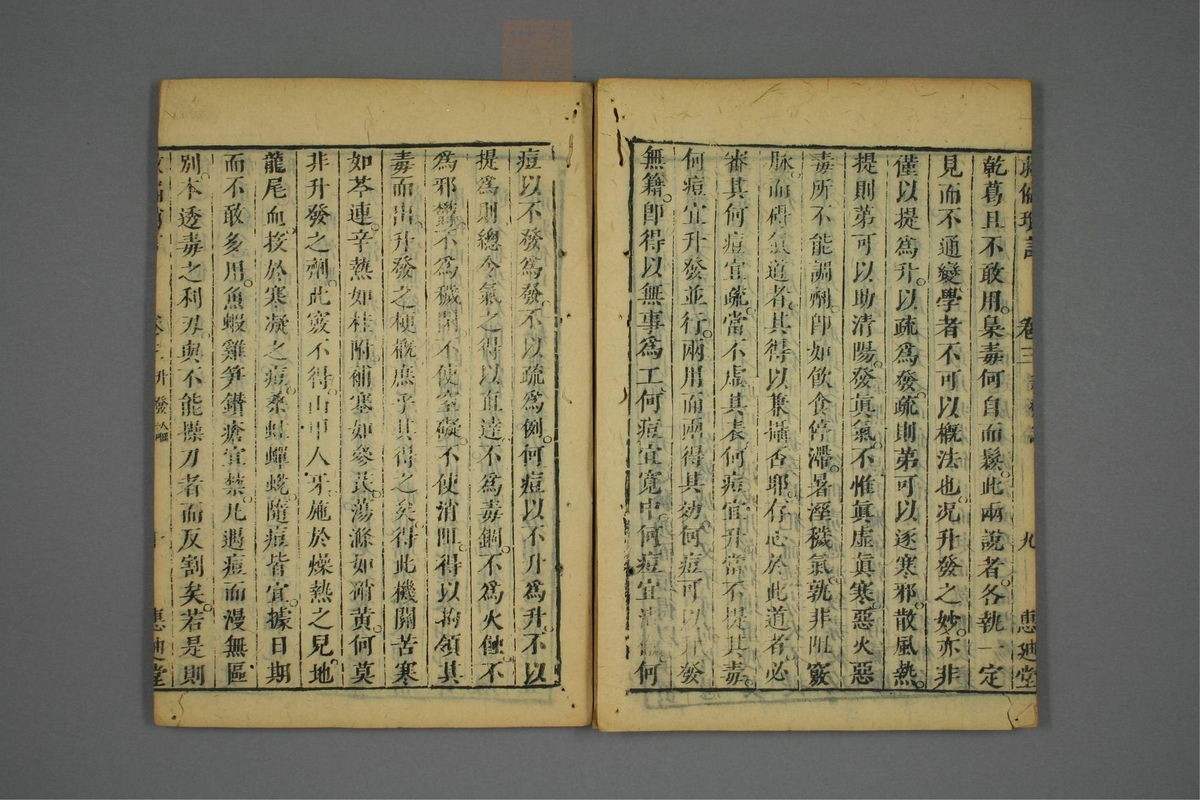 卷三 九 惠廸堂
乾葛且不敢用。梟毒何自而鬆。此兩說者。各執一定
見而不通變。學者不可以概法也。况升發之妙。亦非
僅以提為升。以疏為發。疏則第可以逐寒邪。散風熱。
提則第可以助清陽。發眞氣。不惟眞虛眞寒。惡火惡
毒所不能調劑。卽如飲食停滯。暑溼穢氣。孰非阻竅
脉而礙氣道者。其得以兼攝否耶。存心於此道者。必
審其何痘宜疏。當不虛其表。何痘宜升。當不提其毒。
何痘宜升發並行。兩用而兩得其効。何痘可以升發
無籍。卽得以無事為工。何痘宜寬中。何痘宜 何
痘以不發為發。不以疏為例。何痘以不升為升。不以
提為則。總令氣之得以直達。不為毒錮。不為火蝕。不
為邪鬱。不為穢閉。不使窒礙。不使消阻。得以拘領其
毒而出。升發之梗概。庶乎其得之矣。得此機關。苦寒
如芩連。辛熱如桂附。補塞如參芪。蕩滌如硝黃。何莫
非升發之劑。此竅不得。山甲人牙。施於燥熱之兒。地
龍尾血。投於寒凝之痘。桑蛄蟬蛻。隨痘皆宜。據日期
而不敢多用。魚蝦雞笋鑽瘡宜禁。凡遇痘而漫無區
別。本透毒之利刃。與不能操刀者而反割矣。若是則
升發 惠廸堂